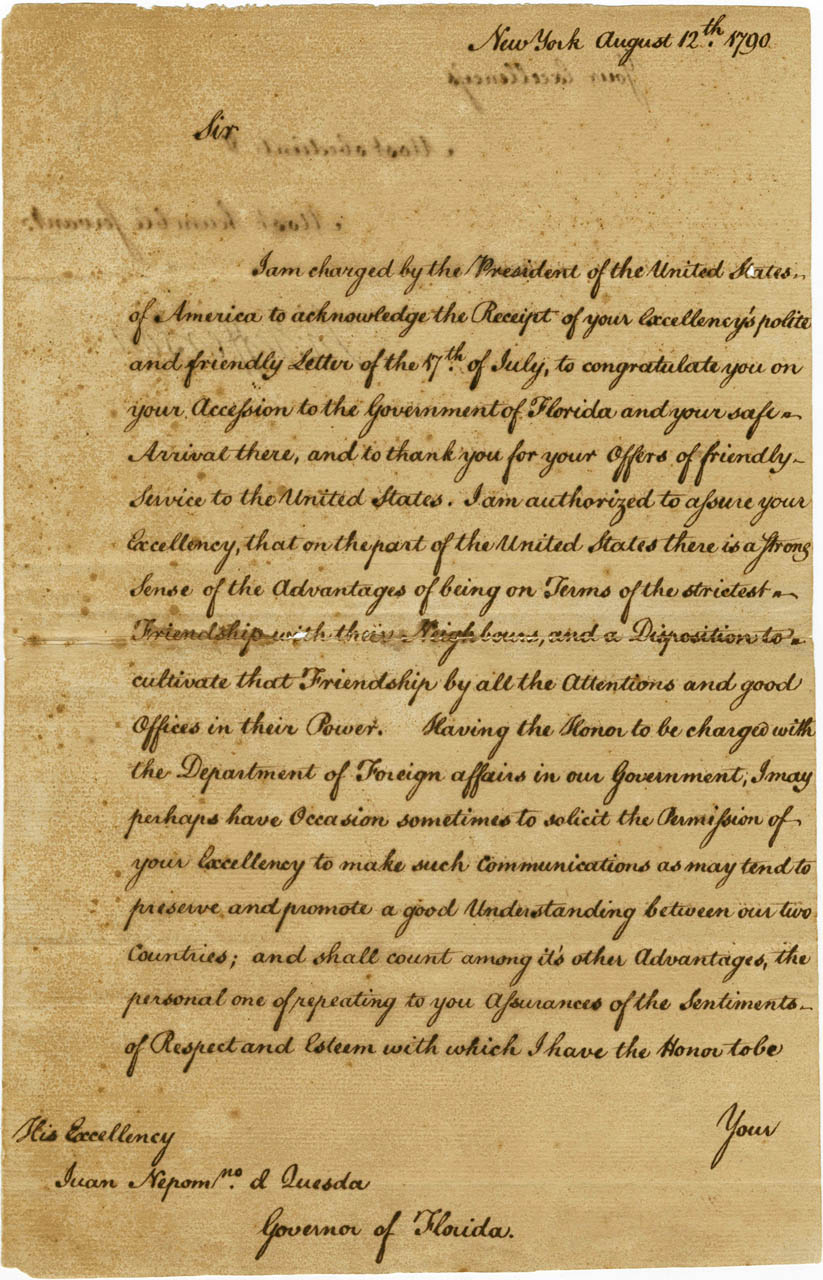 New York August 12th. 1790
Sir
I am charged by the President of the United States
of America to acknowledge the Receipt of your Excellency's polite
and friendly Letter of the 17th. of July, to congratulate you on
your Accession to the Government of Florida and your safe
Arrival there, and to thank you for your Offers of friendly
Service to the United States. I am authorized to assure your
Excellency, that on the part of the United States there is a strong
Sense of the Advantages of being on Terms of the strictest
Friendship with their Neighbours, and a Disposition to
cultivate that Friendship by all the Attentions and good
Offices in their Power. Having the Honor to be charged with
the Department of Foreign affairs in our Government, I may
perhaps have Occasion sometimes to solicit the Permission of
your Excellency to make such Communications as may tend to
preserve and promote a good Understanding between our two
Countries; and shall count among it's other Advantages, the
personal one of repeating to you Assurances of the Sentiments
of Respect and Esteem with which I have the Honor to be
Your
His Excellency
Juan Nepomno. d Quesda
Governor of Florida.